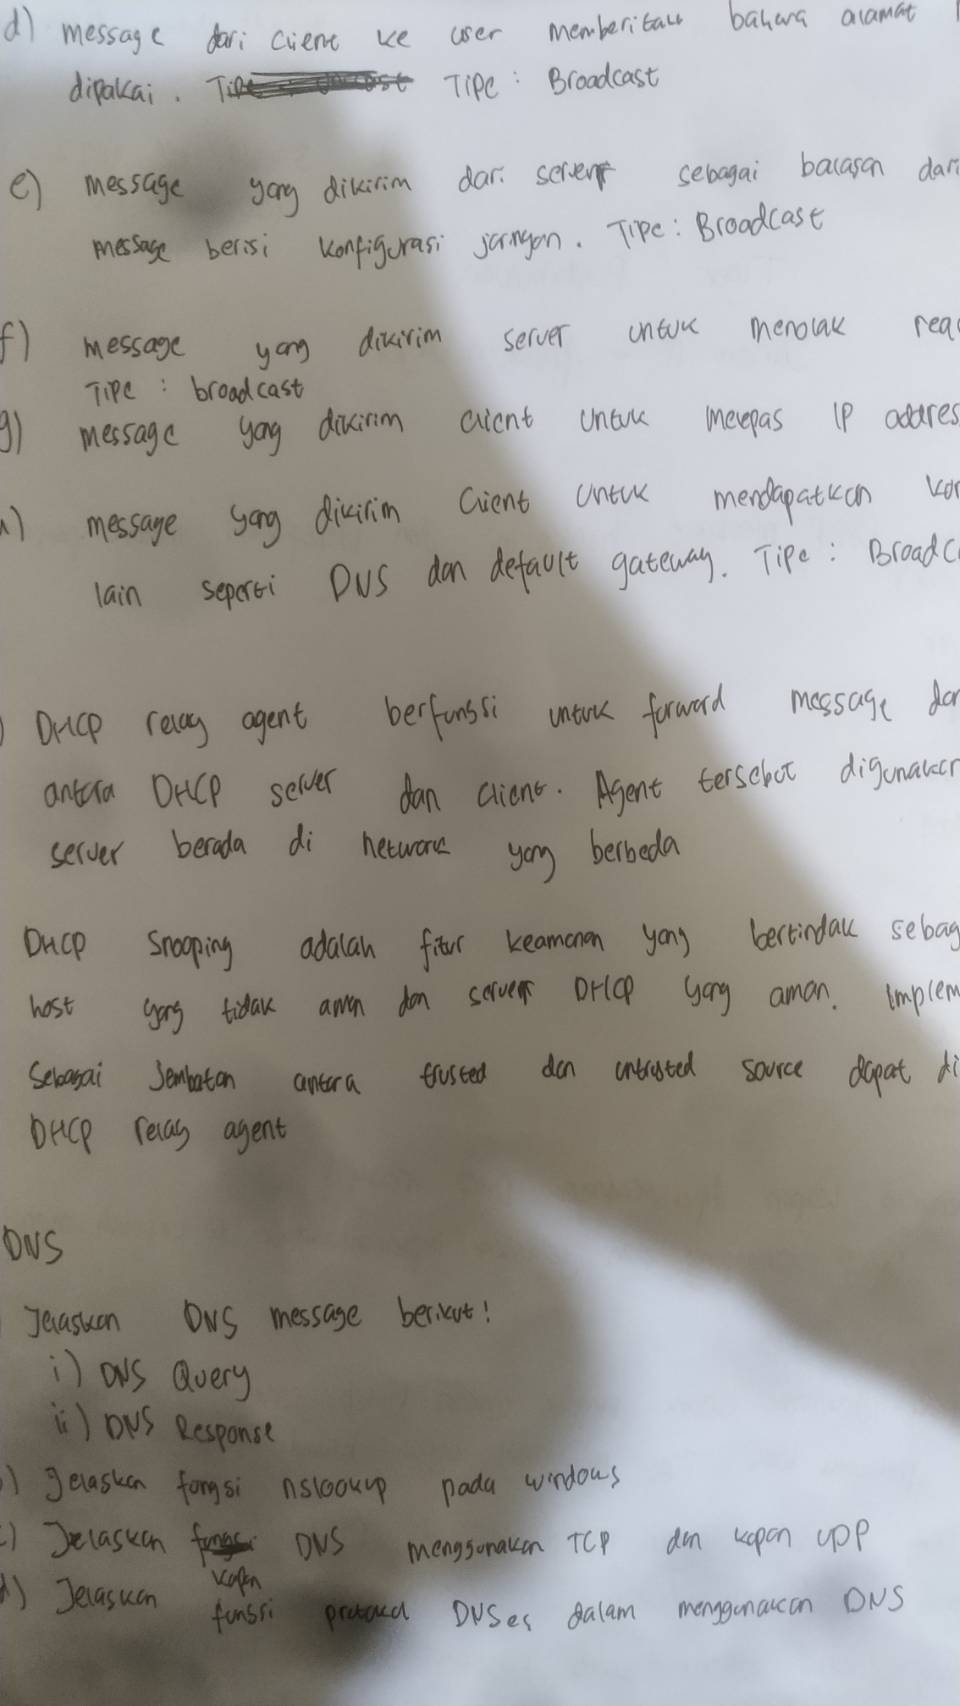 d) message dari client ke user memberitau bahwa alamat
dipakai. Tipe : Broadcast
e) message yang dikirim dari server sebagai balasan dari
message berisi konfigurasi jaringan. Tipe : Broadcast
f) message yang dikirim server untuk menolak req
Tipe : broadcast
g) message yang dikirim client untuk melepas IP addres
message yang dikirim client untuk mendapatkan kon
lain seperti DNS dan default gateway. Tipe : Broadc
DHCP relay agent berfungsi untuk forward message dar
antara DHCP server dan client. Agent tersebut digunakan
server berada di network yang berbeda
DHCP Snooping adalah fitur keamanan yang bertindak sebag
host yang tidak aman dan server DHCP yang aman. Implem
Sebagai Jembatan antara trusted dan untrusted source dapat di
DHCP relay agent
DNS
Jelaskan DNS message berikut!
i) DNS Query
ii) DNS Response
) Jelaskan fungsi nslookup pada windows
) Jelaskan kapan DNS menggunakan TCP dan kapan UDP
d) Jelaskan fungsi protokol DNSes dalam menggunakan DNS